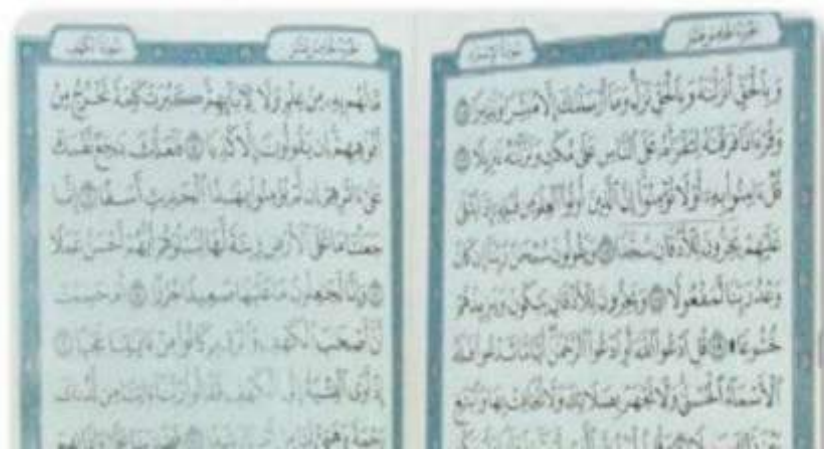 الجزء الخامس عشر
سورة الإسراء
وَبِالْحَقِّ أَنزَلْنَاهُ وَبِالْحَقِّ نَزَلَ وَمَا أَرْسَلْنَاكَ إِلَّا مُبَشِّرًا وَنَذِيرًا ١٠٥
وَقُرْآنًا فَرَقْنَاهُ لِتَقْرَأَهُ عَلَى النَّاسِ عَلَى مُكْثٍ وَنَزَّلْنَاهُ تَنزِيلًا ١٠٦
قُلْ ءَامِنُوا بِهِ أَوْ لَا تُؤْمِنُوا إِنَّ الَّذِينَ أُوتُوا الْعِلْمَ مِن قَبْلِهِ إِذَا يُتْلَى
عَلَيْهِمْ يَخِرُّونَ لِلْأَذْقَانِ سُجَّدًا ١٠٧ وَيَقُولُونَ سُبْحَانَ رَبِّنَا إِن كَانَ
وَعْدُ رَبِّنَا لَمَفْعُولًا ١٠٨ وَيَخِرُّونَ لِلْأَذْقَانِ يَبْكُونَ وَيَزِيدُهُمْ
خُشُوعًا ۩ ١٠٩ قُلِ ادْعُوا اللَّهَ أَوِ ادْعُوا الرَّحْمَنَ أَيًّا مَّا تَدْعُوا فَلَهُ
الْأَسْمَاءُ الْحُسْنَى وَلَا تَجْهَرْ بِصَلَاتِكَ وَلَا تُخَافِتْ بِهَا وَابْتَغِ
الجزء الخامس عشر
سورة الكهف
مَّا لَهُم بِهِ مِنْ عِلْمٍ وَلَا لِآبَائِهِمْ كَبُرَتْ كَلِمَةً تَخْرُجُ مِنْ
أَفْوَاهِهِمْ إِن يَقُولُونَ إِلَّا كَذِبًا ٥ فَلَعَلَّكَ بَاخِعٌ نَّفْسَكَ
عَلَى ءَاثَارِهِمْ إِن لَّمْ يُؤْمِنُوا بِهَذَا الْحَدِيثِ أَسَفًا ٦ إِنَّا
جَعَلْنَا مَا عَلَى الْأَرْضِ زِينَةً لَّهَا لِنَبْلُوَهُمْ أَيُّهُمْ أَحْسَنُ عَمَلًا
٧ وَإِنَّا لَجَاعِلُونَ مَا عَلَيْهَا صَعِيدًا جُرُزًا ٨ أَمْ حَسِبْتَ
أَنَّ أَصْحَابَ الْكَهْفِ وَالرَّقِيمِ كَانُوا مِنْ ءَايَاتِنَا عَجَبًا ٩
إِذْ أَوَى الْفِتْيَةُ إِلَى الْكَهْفِ فَقَالُوا رَبَّنَا ءَاتِنَا مِن لَّدُنكَ